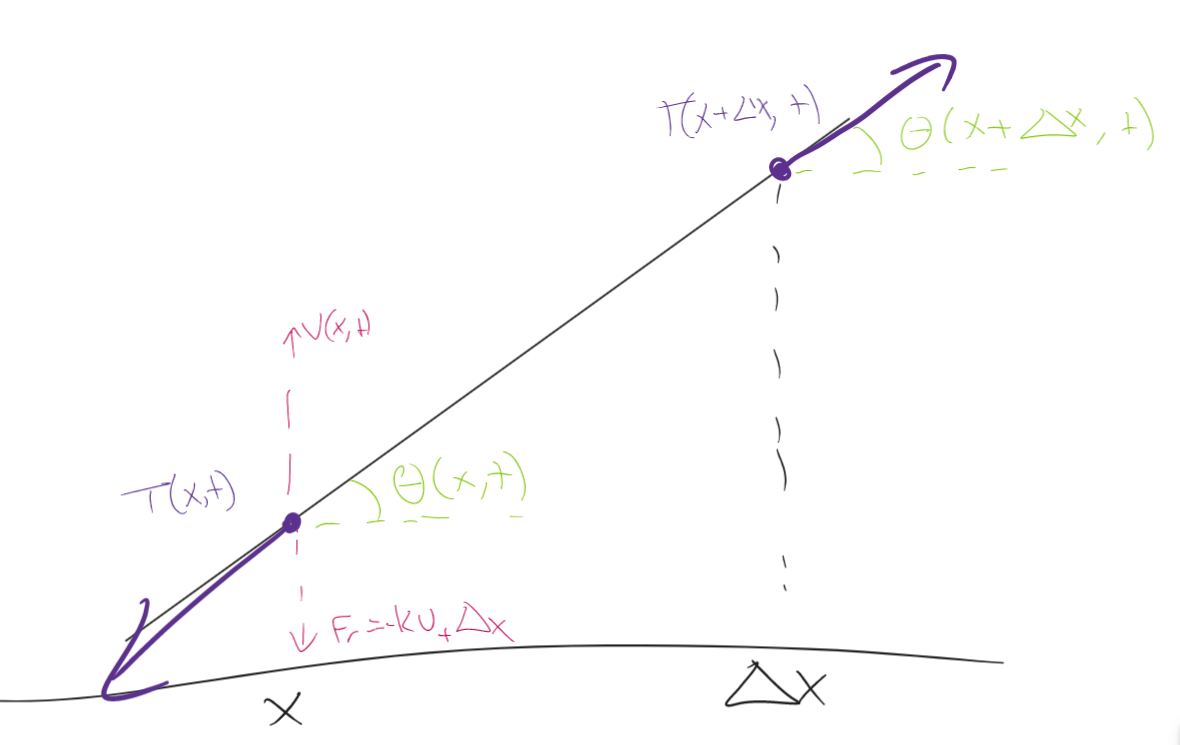 T(x+Δx, t)
θ(x+Δx, t)
V(x,t)
T(x,t)
θ(x,t)
Fr=-kUtΔx
x
Δx